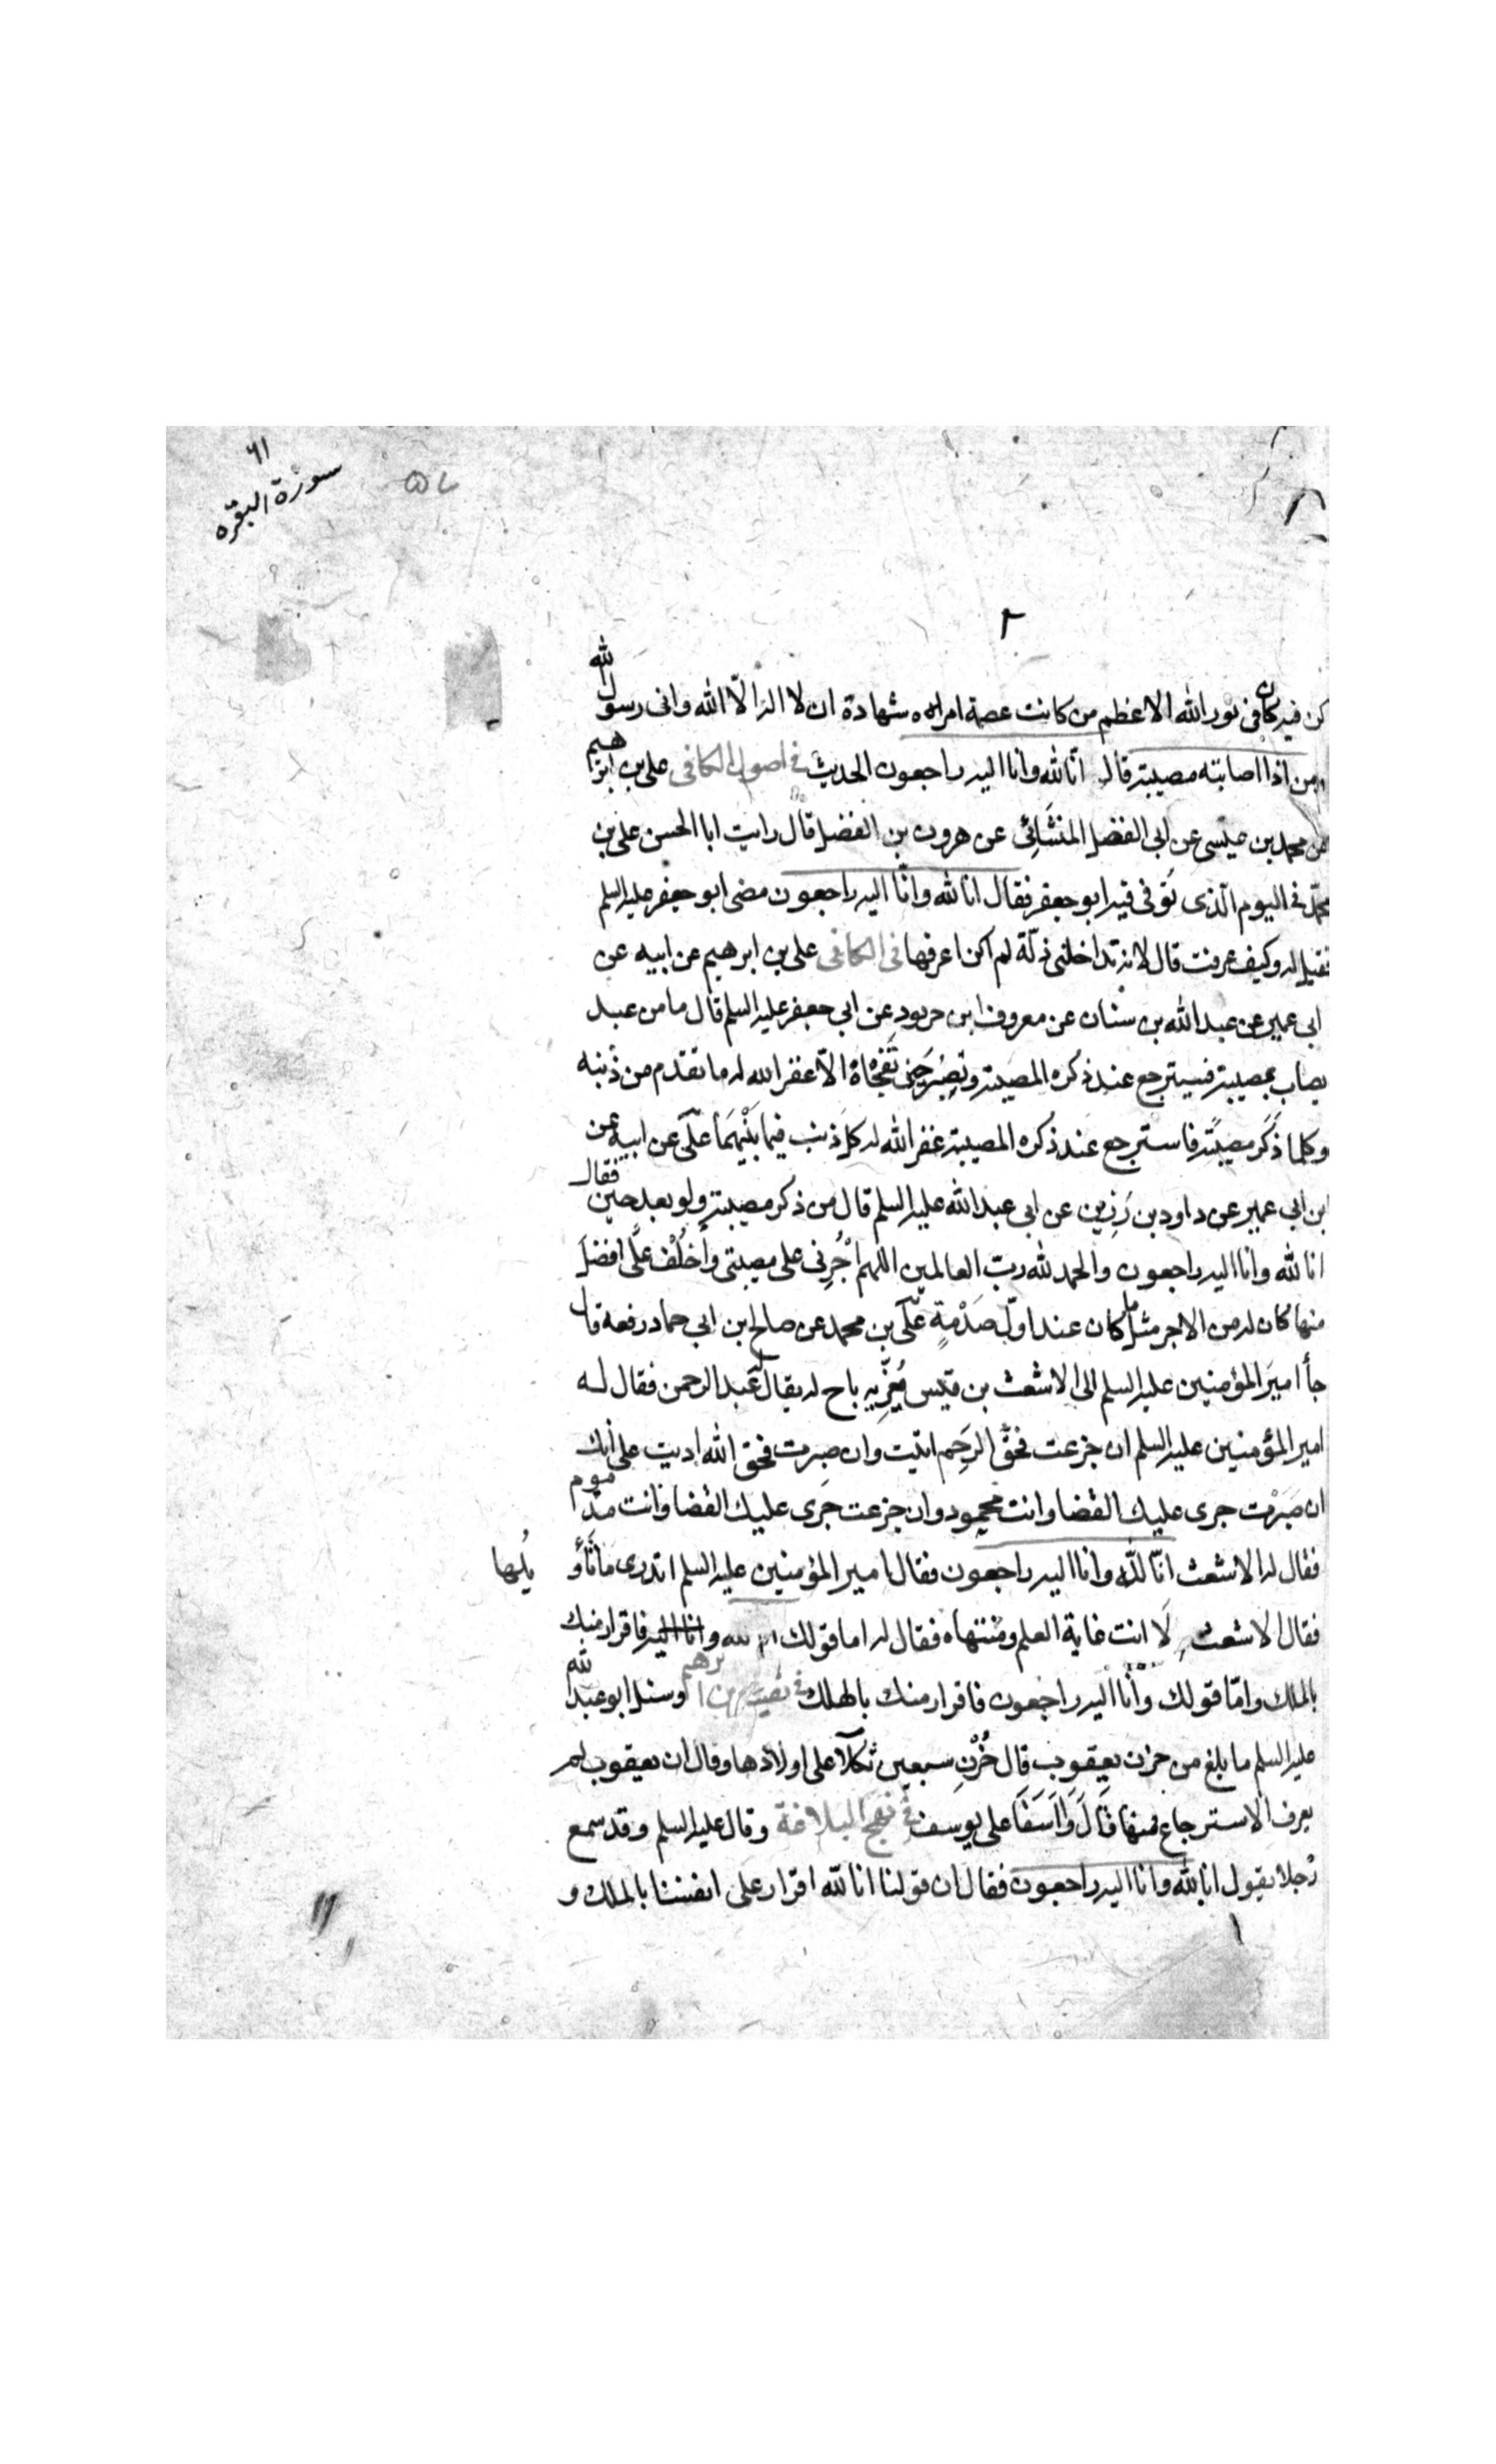 ٦١
سورة البقره
٢
كن فيه كان فى نور الله الاعظم من كانت عصمة امره شهادة ان لا اله الّا الله وانى رسول الله
ومن اذا اصابته مصيبة قال انّا لله وانا اليه راجعون الحديث فى اصول الكافى على بن ابرهيم
عن محمد بن عيسى عن ابى الفضل المنشَائِى عن هرون بن الفضل قال رايت ابا الحسن على بن
محمّد فى اليوم الّذى تَوفى فيه ابو جعفر فقال انا لله وانّا اليه راجعون مضى ابو جعفر عليه السلم
فقيل له وكيف عرفت قال لانه تداخلنى ذلّة لم اكن اعرفها فى الكافى على بن ابرهيم عن ابيه عن
ابى عمير عن عبد الله بن سنان عن معروف بن خربوذ عن ابى جعفر عليه السلم قال ما من عبد
يصاب بمصيبة فيسترجع عند ذكره المصيبة وتصبُر حَين تَفجَأه الّا غفر الله له ما تقدم من ذَنبه
وكلما ذَكَر مصيبَة فاسترجع عند ذكره المصيبة غفر الله له كلَ ذنب فيما بَيْنَهمَا علىّ عن ابيه عن
ابن ابى عمير عن داود بن رَزِين عن ابى عبد الله عليه السلم قال من ذكر مصيبة ولو بعد حين فقال
انا لله وانا اليه راجعون والحمد لله ربّ العالمين اللهم اْجُرنى على مصيبتى وأخلُف علَّى افضل
منها كان له من الاجر مثل ما كان عند اولِ صَدْمةٍ علىّ بن محمد عن صالح بن ابى حماد رفعه قال
جأ امير المؤمنين عليه السلم الى الاشعث بن قيس يُعَزّيه باخ له يقال له عبد الرحمن فقال له
امير المؤمنين عليه السلم ان جزعت فحَقَّ الرَحِم اتيت وان صبرت فحق الله اديت على انك
ان صَبَرْت جرى عليك القضا وانت محمود وان جزعت جَرى عليك القضا وانت مذموم
فقال له الاشعث انّا للّه وانا اليه راجعون فقال امير المؤمنين عليه السلم اتدرى ما تَأو يُلها
فقال الاشعث لَا انت غاية العلم ومُنتهاه فقال له اما قولك انا لله وانا اليه فاقرار منك
بالملك وامّا قولك وانّا اليه راجعون فاقرار منك بالهلك فى تفسير على بن ابرهيم وسئل ابو عبد الله
عليه السلم ما بلغ من حزن يعقوب قال حُزْنِ سبعين ثكلَا على اولادها وقال ان يعقوب لم
يعرف الاسترجاع فمنها قَالَ وَااَسَفَا على يوسف فى نهج البلاغة وقال عليه السلم وقد سمع
رَجلا يقول انا لله وانا اليه راجعون فقال ان قولنا انا للّه اقرار على انفسنا بالملك و